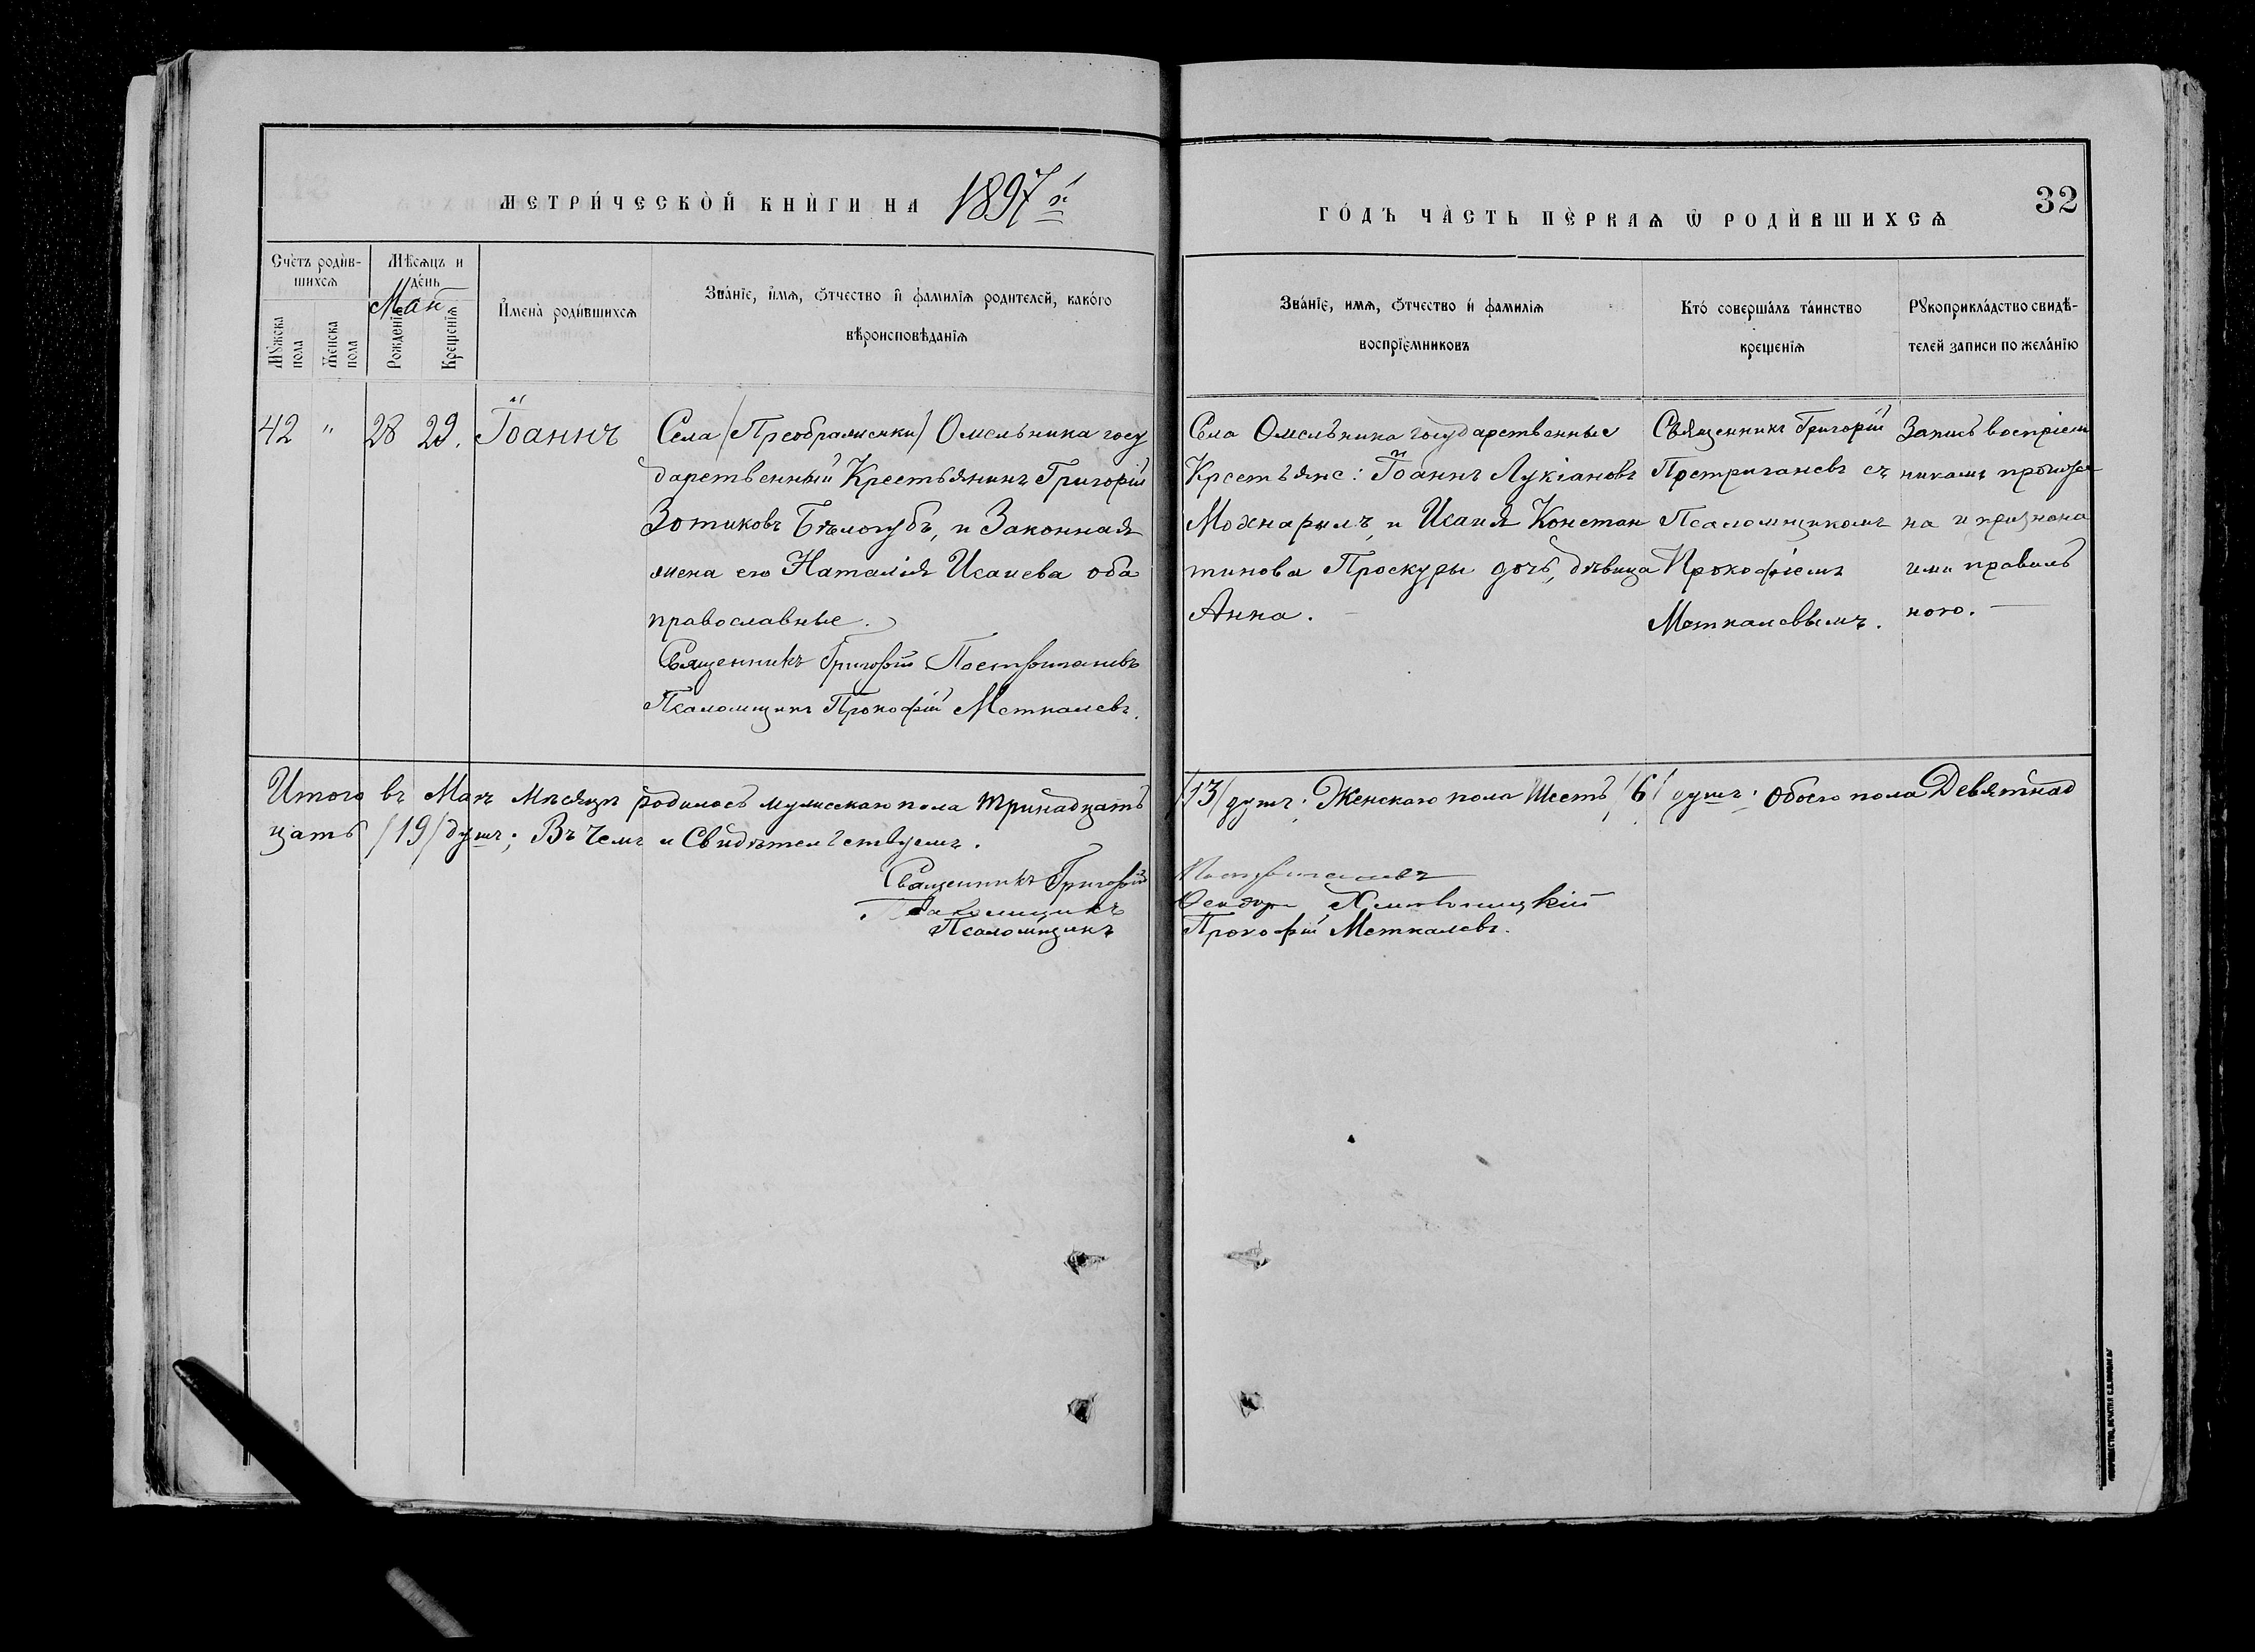 МЕТРИ́ЧЕСКОЙ КНИ́ГИ НА 1897й
ГО́ДЪ ЧА́СТЬ ПЕ́РВАѦ Ѡ РОДИ́ВШИХСѦ
32
Сче́тъ роди́в-
шихсѧ
Мѣ́сѧцъ и
де́нь
Май
Мꙋжска
пола
Женска
пола
Рожденїѧ
Крещенїѧ
И҆мена̀ роди́вшихсѧ
Зва́нїе, и҆́мѧ, ѻ҆́тчество и҆ фамилїѧ родителей, како́го
вѣроисповѣданїѧ
Зва́нїе, имѧ, ѻ҆́тчество и҆ фамилїѧ
воспрїемниковъ
Кто́ соверша́лъ та́инство
крещенїѧ
Рꙋкоприкла́дство свидѣ́-
телей записи по жела́нїю
42 " 28 29. Іоаннъ
Села /Преображенки/ Омельника госу
дарственный Крестьянинъ Григорій
Зотиковъ Бѣлогубъ, и Законная
жена его Наталія Исаиева оба
православные.
Священникъ Григорій Постриганевъ
Псаломщикъ Прокофій Меткалевъ.
Села Омельника государственные
Крестьяне: Іоаннъ Лукіановъ
Мохнарылъ, и Исаія Констан
тинова Проскуры дочь, дѣвица
Анна.
Священникъ Григорій
Постриганевъ съ
Псаломщикомъ
Прокофіемъ
Меткалевымъ.
Запись воспріем
никамъ прочита
на и признана
ими правиль
ною.
Итого въ Маѣ мѣсяцѣ родилось мужескаго пола тринадцать /13/ душъ; Женскаго пола Шесть /6/ душъ; обоего пола Девятнад
цать /19/ душъ; Въ чемъ и Свидѣтельствуемъ.
Священникъ Григорій Постриганевъ
Псаломщикъ
Псаломщикъ Прокофій Меткалевъ.